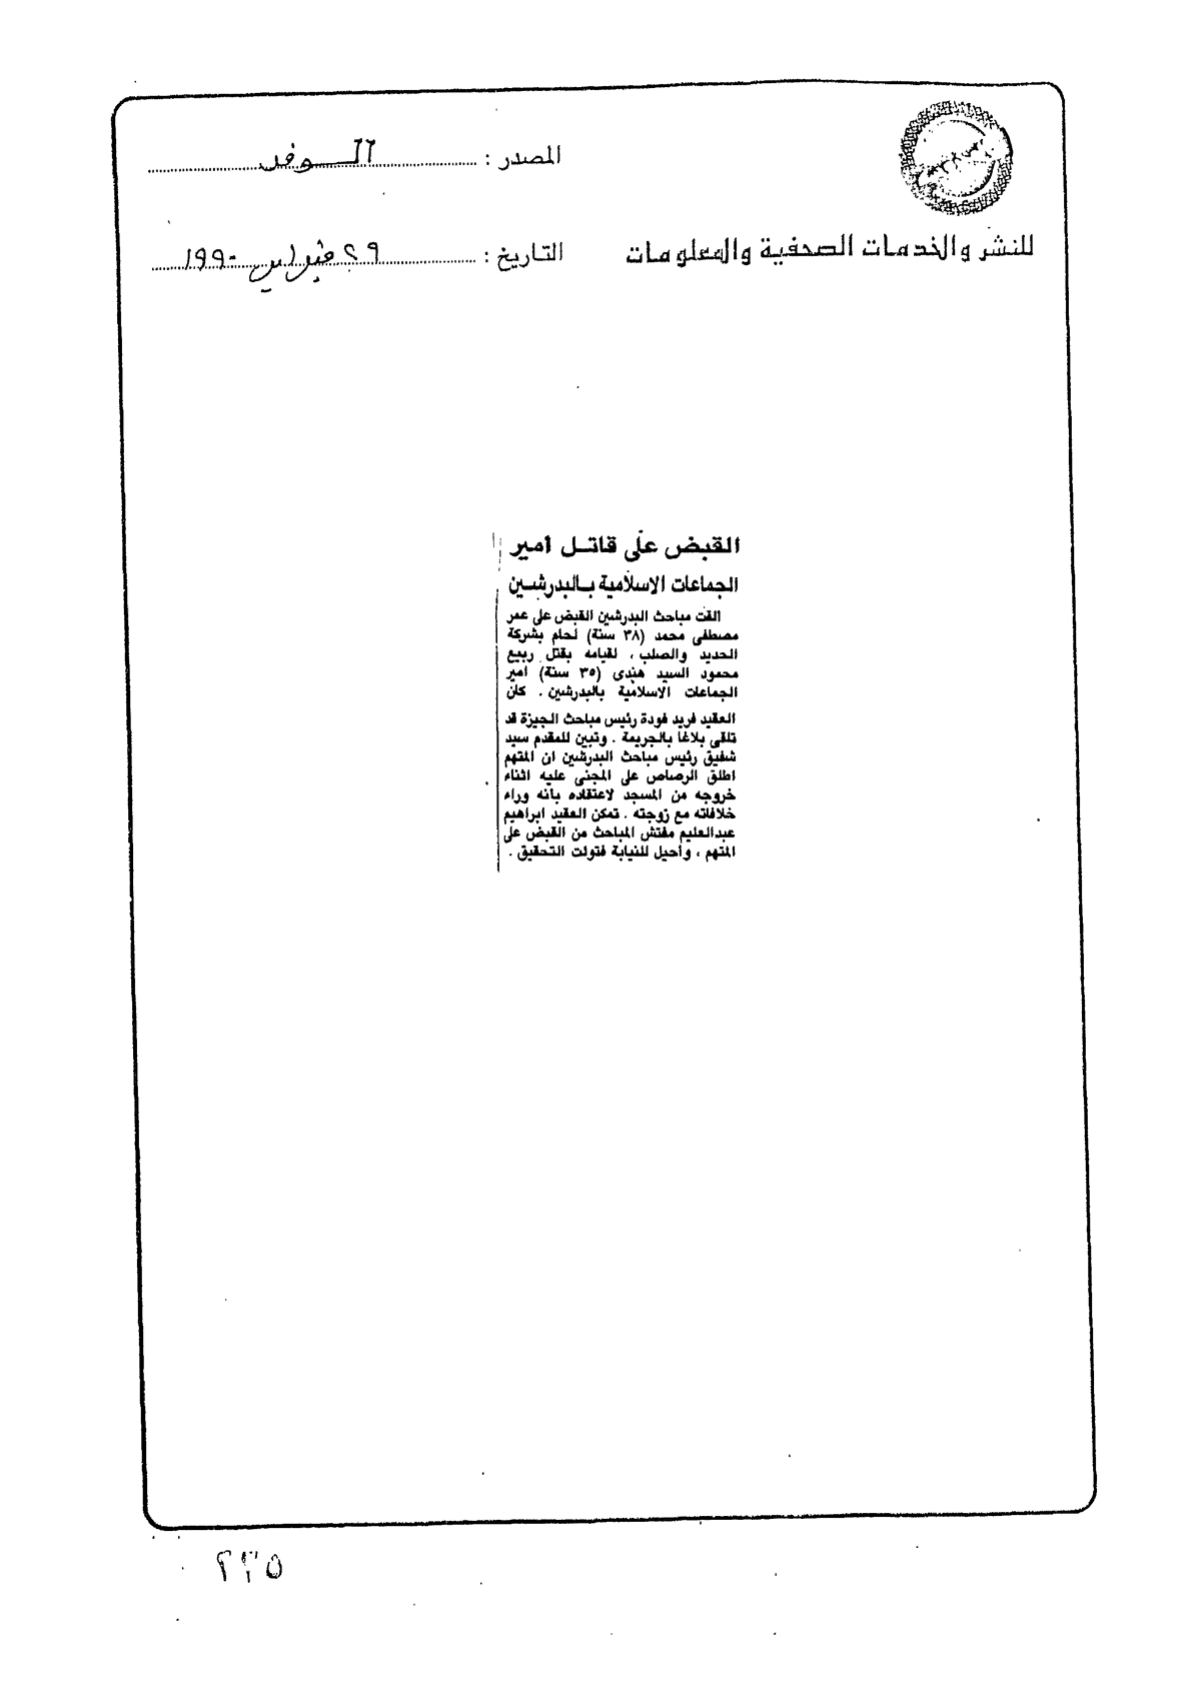 المصدر : الوفد
للنشر والخدمات الصحفية والمعلومات
التاريخ : ٢٩ فبراير ١٩٩٠
القبض على قاتل أمير
الجماعات الإسلامية بالبدرشين
القت مباحث البدرشين القبض على عمر
مصطفى محمد (٣٨ سنة) لحام بشركة
الحديد والصلب ، لقيامه بقتل ربيع
محمود السيد هندى (٣٥ سنة) امير
الجماعات الاسلامية بالبدرشين . كان
العقيد فريد فودة رئيس مباحث الجيزة قد
تلقى بلاغا بالجريمة . وتبين للمقدم سيد
شفيق رئيس مباحث البدرشين ان المتهم
اطلق الرصاص على المجنى عليه اثناء
خروجه من المسجد لاعتقاده بانه وراء
خلافاته مع زوجته . تمكن العقيد ابراهيم
عبدالعليم مفتش المباحث من القبض على
المتهم ، وأحيل للنيابة فتولت التحقيق .